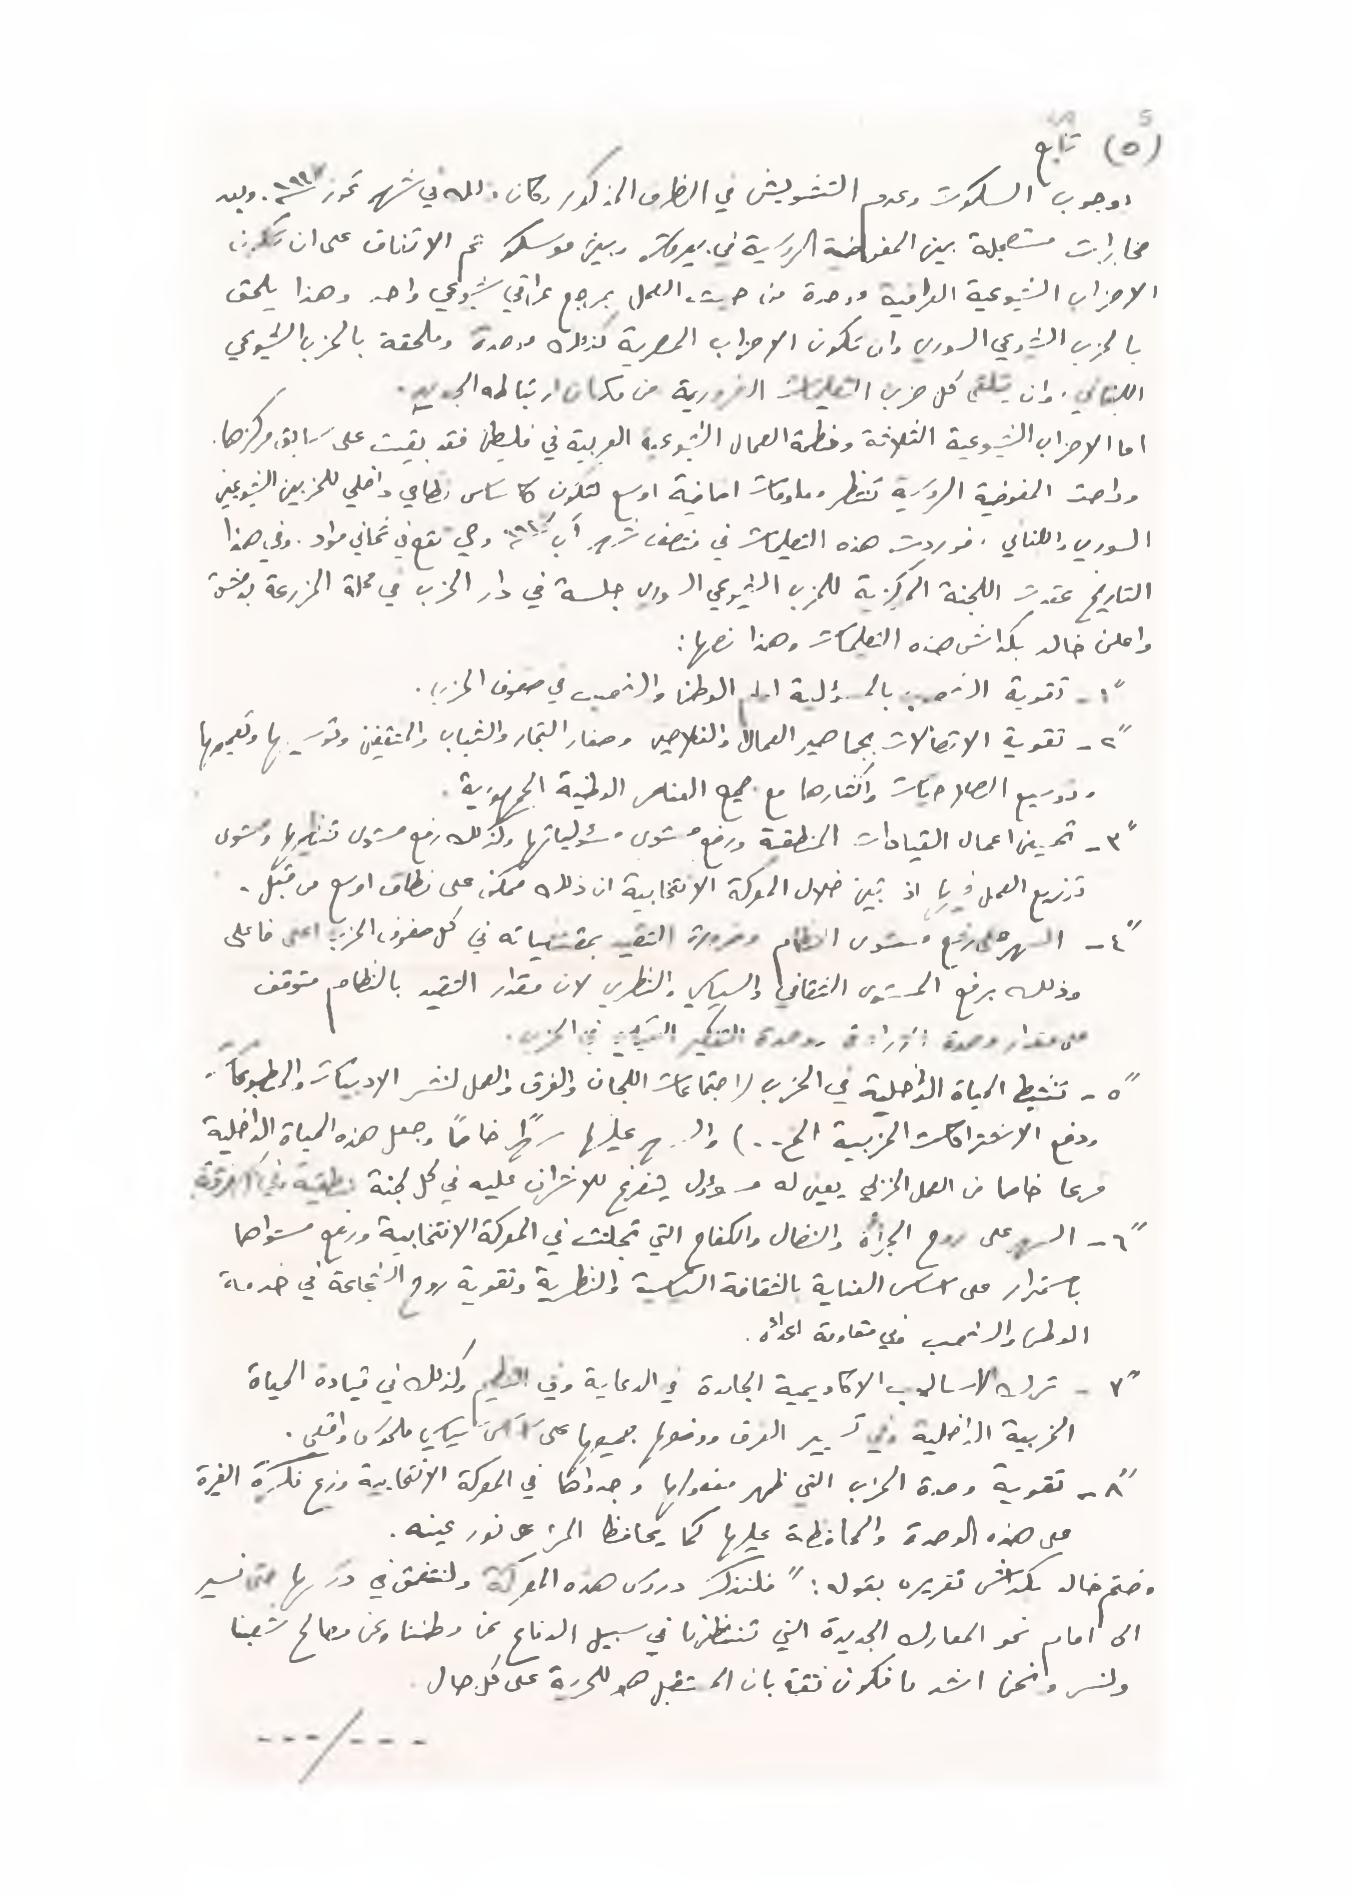 5
(٥) تابع
"وجوب السكوت وعدم التشويش في الظرف المذكور وكان ذلك في شهر تموز ١٩٤٧. وبعد
مخابرات مستعجلة بين المفوضية الروسية في بيروت وبين موسكو تم الاتفاق على ان تكون
الاحزاب الشيوعية العراقية موحدة من حيث العمل بمرجع عراقي شيوعي واحد وهذا يلحق
بالحزب الشيوعي السوري وان تكون الاحزاب المصرية كذلك موحدة وملحقة بالحزب الشيوعي
اللبناني، وان يتلقى كل حزب التعليمات الضرورية من مكان ارتباطه الجديد.
اما الاحزاب الشيوعية الثلاثة ومنظمة العمال الشيوعية العربية في فلسطين فقد بقيت على سابق مركزها.
وراحت المفوضية الروسية تنتظر معلومات اضافية اوسع لتكون كأساس نظامي داخلي للحزبين الشيوعيين
السوري واللبناني، فوردت هذه التعليمات في منتصف شهر آب ١٩٤٧ وهي تقع في ثماني مواد. وفي هذا
التاريخ عقدت اللجنة المركزية للحزب الشيوعي السوري جلسة في دار الحزب في محلة المزرعة بدمشق
واعلن خالد بكداش هذه التعليمات وهذا نصها:
"١ - تقوية الشعب بالمسؤولية امام الوطن والشعب في صفوف الحزب.
"٢ - تقوية الاتصالات بجماهير العمال والفلاحين وصغار التجار والشباب والمثقفين وتوسيعها وتعميمها
وتوسيع الصلاحيات واكثارها مع جميع العناصر الوطنية الجمهورية.
"٣ - تحسين اعمال القيادات المنطقية ورفع مستوى مسؤولياتها وكذلك رفع مستوى تنظيمها ومستوى
توزيع العمل فيها اذ تبين خلال المعركة الانتخابية ان ذلك ممكن على نطاق اوسع من قبل.
"٤ - السهر على رفع مستوى النظام وضرورة التقيد بمقتضياته في كل صفوف الحزب اعلى فاعلى
وذلك برفع المستوى الثقافي والسياسي والنظري لان مقدار التقيد بالنظام متوقف
على مقدار وحدة الارادة ووحدة التفكير السياسي في الحزب.
"٥ - تنشيط الحياة الداخلية في الحزب (اجتماعات اللجان والفرق والعمل لنشر الادبيات والمطبوعات
ودفع الاشتراكات الحزبية الخ..) والسهر عليها سهراً خاصاً وجعل هذه الحياة الداخلية
فرعا خاصا من العمل الحزبي يعين له مسؤول يتفرغ للاشراف عليه في كل لجنة منطقية وفي كل فرقة
"٦ - السهر على روح الجرأة والنضال والكفاح التي تجلت في المعركة الانتخابية ورفع مستواها
باستمرار على اساس العناية بالثقافة السياسية والنظرية وتقوية روح الشجاعة في خدمة
الوطن والشعب وفي مقاومة اعدائه.
"٧ - ترك الاساليب الاكاديمية الجامدة في الدعاية وفي التعليم وكذلك في قيادة الحياة
الحزبية الداخلية وفي تسيير الفرق ووضعها جميعها على اساس سياسي ملموس واقعي.
"٨ - تقوية وحدة الحزب التي ظهر مفعولها وجدواها في المعركة الانتخابية وزرع فكرة الغيرة
على هذه الوحدة والمحافظة عليها كما يحافظ المرء على نور عينه.
وختم خالد بكداش تقريره بقوله: "فلنتذكر دروس هذه المعركة ولنتعمق في درسها حتى نسير
الى امام نحو المعارك الجديدة التي تنتظرنا في سبيل الدفاع عن وطننا وعن مصالح شعبنا
ولنسر ونحن اشد ما نكون ثقة بان المستقبل هو للحرية على كل حال.
---/---